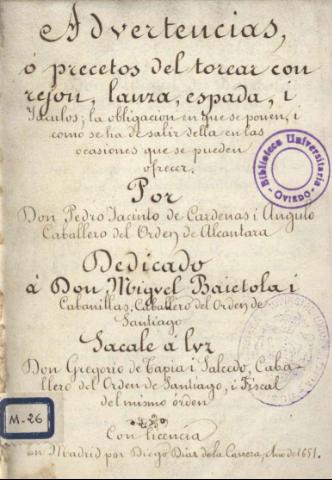 Advertencias,
ó precetos del torear con
rejon, lanza, espada, i
Jaculos; la obligacion en que se ponen, i
como se ha de salir della en las
ocasiones que se pueden
ofrecer.
Por
Don Pedro Jacinto de Cardenas i Angulo
Caballero del Orden de Alcantara
Dedicado
á Don Miguel Baictola i
Cabanillas, Caballero del Orden de
Santiago
Sacale a luz
Don Gregorio de Tapia i Salcedo, Caba-
llero del Orden de Santiago, i Fiscal
del mismo órden
Con licencia
En Madrid por Diego Diaz de la Carrera, Año de 1651.
Biblioteca Universitaria
OVIEDO
M-26